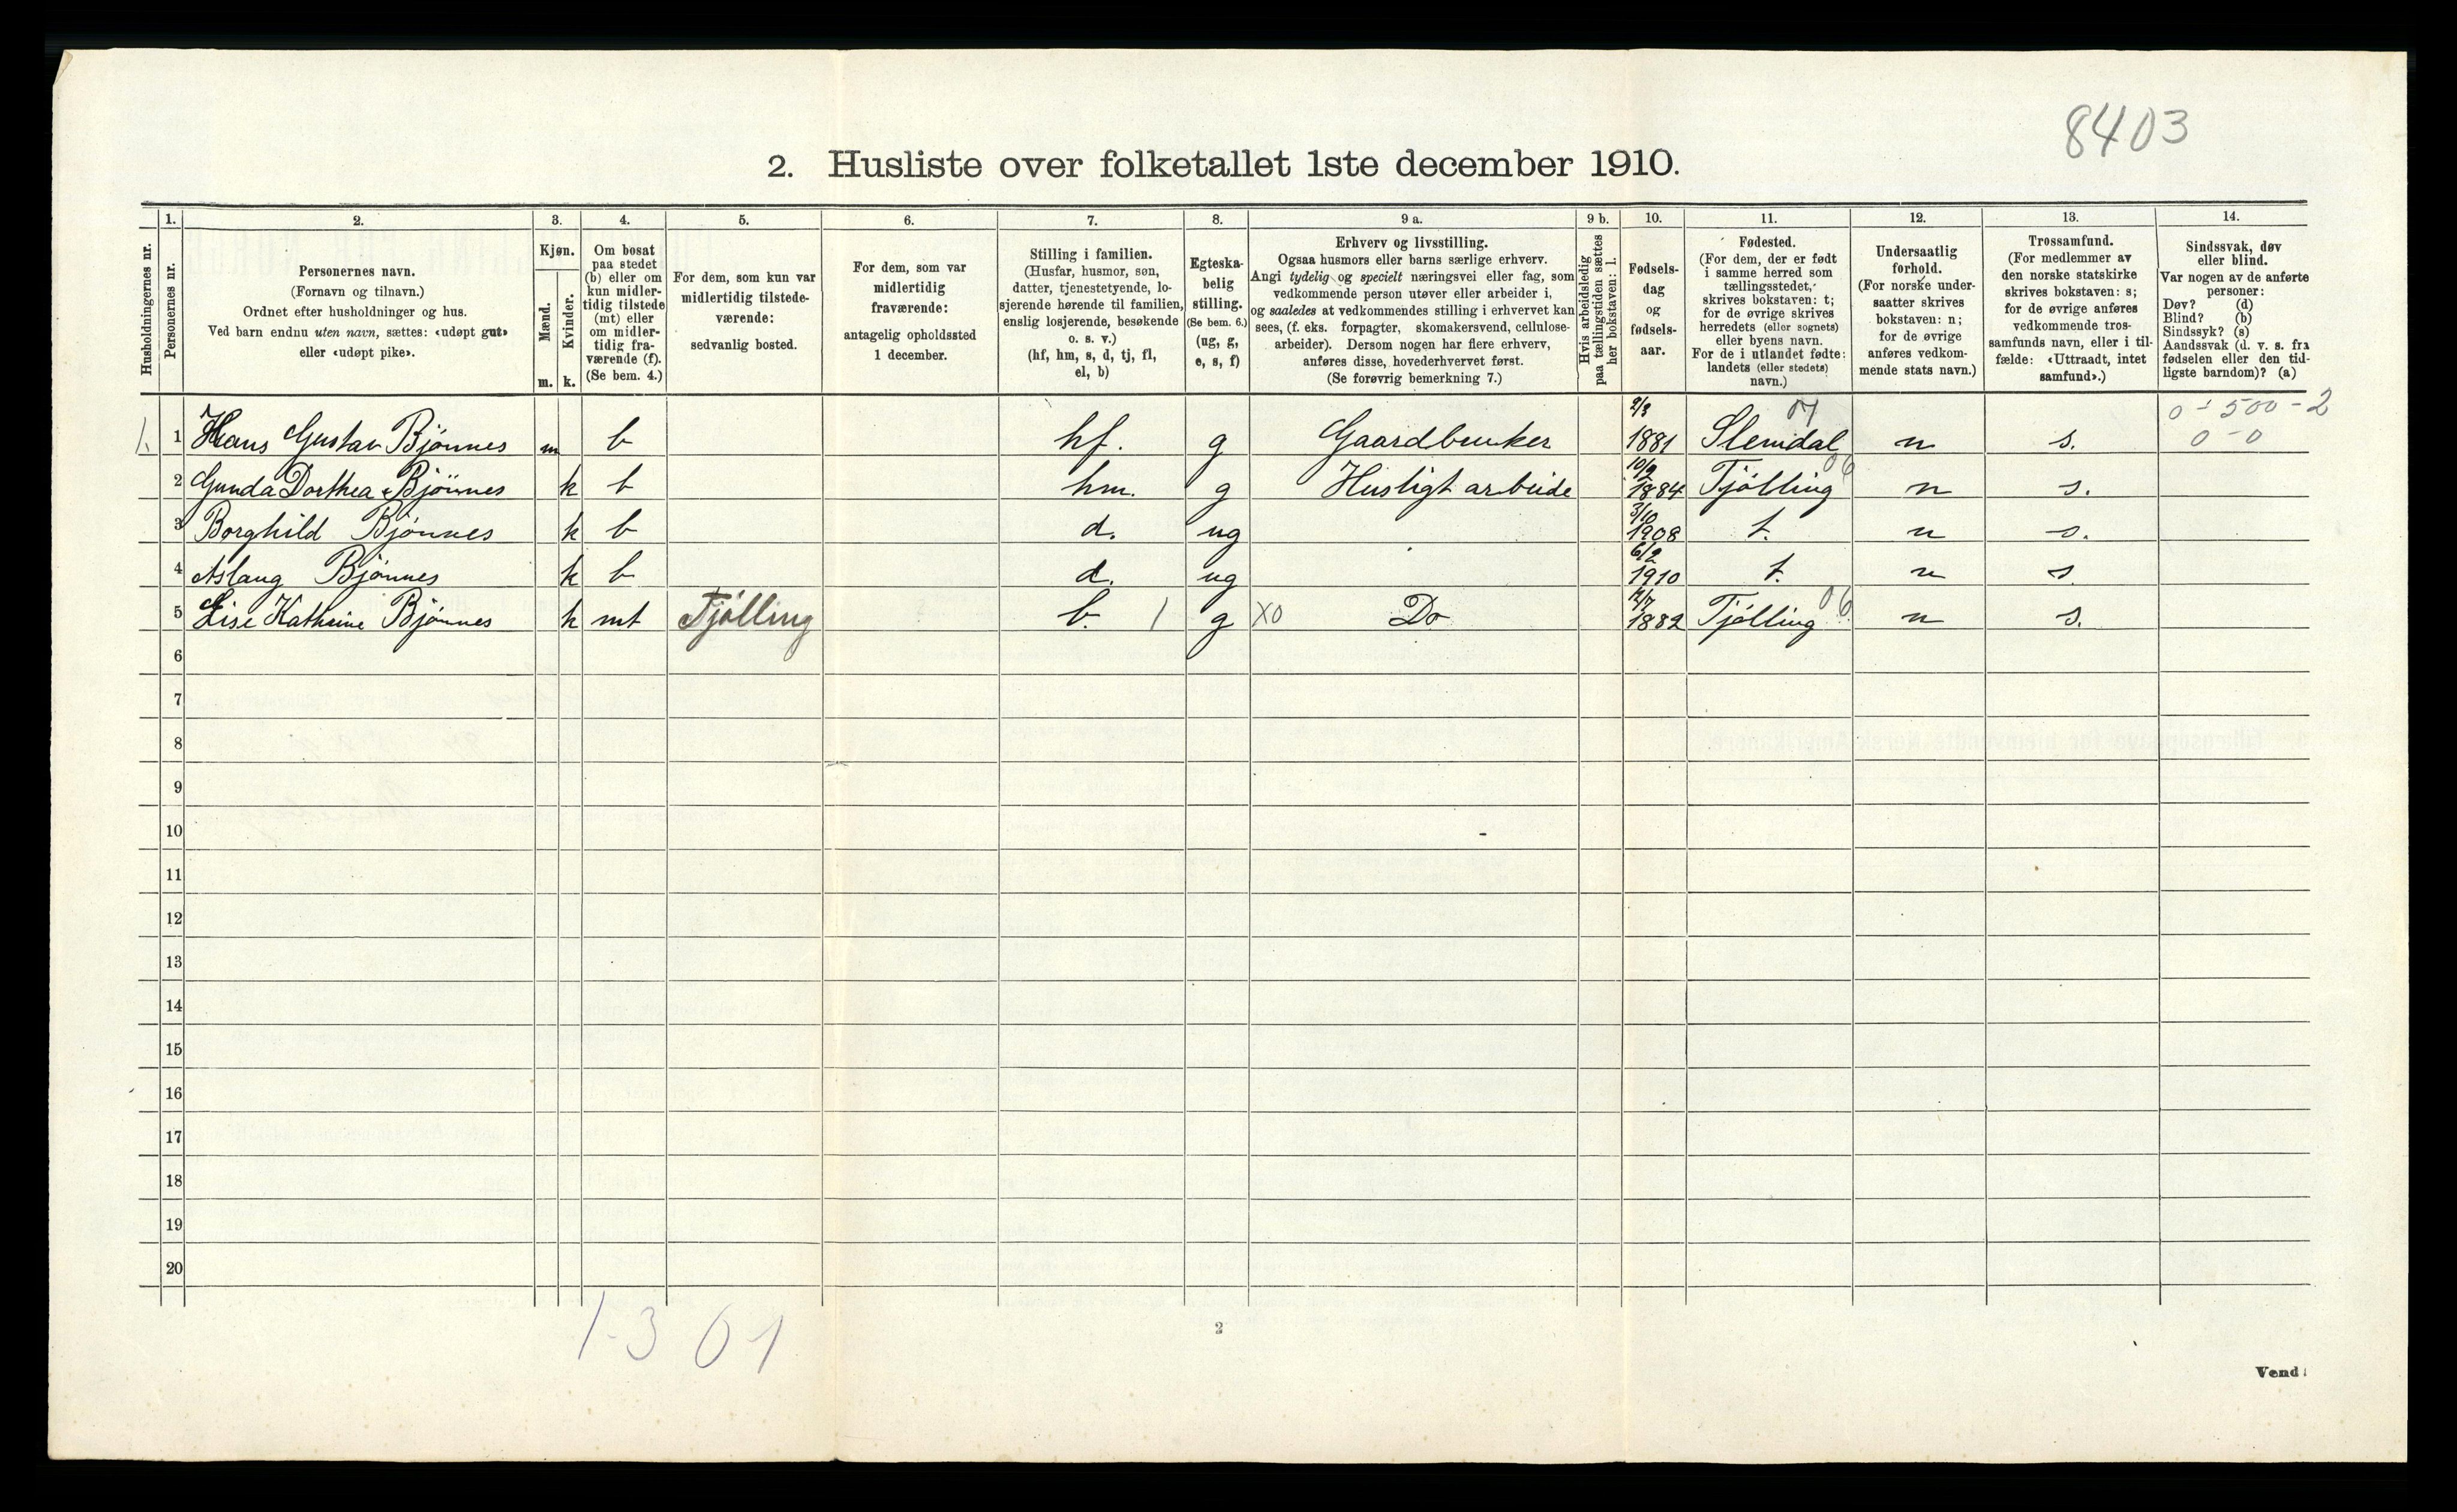 8403
2. Husliste over folketallet 1ste december 1910.
Husholdningernes nr.
1.
Personernes nr.
2.
Personernes navn.
(Fornavn og tilnavn.)
Ordnet efter husholdninger og hus.
Ved barn endnu uten navn, sættes: «udøpt gut»
eller «udøpt pike».
3.
Kjøn.
Mænd.
Kvinder.
m. k.
4.
Om bosat
paa stedet
(b) eller om
kun midler-
tidig tilstede
(mt) eller
om midler-
tidig fra-
værende (f).
(Se bem. 4.)
5.
For dem, som kun var
midlertidig tilstede-
værende:
sedvanlig bosted.
6.
For dem, som var
midlertidig
fraværende:
antagelig opholdssted
1 december.
7.
Stilling i familien.
(Husfar, husmor, søn,
datter, tjenestetyende, lo-
sjerende hørende til familien,
enslig losjerende, besøkende
o. s. v.)
(hf, hm, s, d, tj, fl,
el, b)
8.
Egteska-
belig
stilling.
(Se bem. 6.)
(ug, g,
e, s, f)
9 a.
Erhverv og livsstilling.
Ogsaa husmors eller barns særlige erhverv.
Angi tydelig og specielt næringsvei eller fag, som
vedkommende person utøver eller arbeider i,
og saaledes at vedkommendes stilling i erhvervet kan
sees, (f. eks. forpagter, skomakersvend, cellulose-
arbeider). Dersom nogen har flere erhverv,
anføres disse, hovederhvervet først.
(Se forøvrig bemerkning 7.)
9 b.
Hvis arbeidsledig
paa tællingstiden sættes
her bokstaven: l.
10.
Fødsels-
dag
og
fødsels-
aar.
11.
Fødested.
(For dem, der er født
i samme herred som
tællingsstedet,
skrives bokstaven: t;
for de øvrige skrives
herredets (eller sognets)
eller byens navn.
For de i utlandet fødte:
landets (eller stedets)
navn.)
12.
Undersaatlig
forhold.
(For norske under-
saatter skrives
bokstaven: n;
for de øvrige
anføres vedkom-
mende stats navn.)
13.
Trossamfund.
(For medlemmer av
den norske statskirke
skrives bokstaven: s;
for de øvrige anføres
vedkommende tros-
samfunds navn, eller i til-
fælde: «Uttraadt, intet
samfund».)
14.
Sindssvak, døv
eller blind.
Var nogen av de anførte
personer:
Døv? (d)
Blind? (b)
Sindssyk? (s)
Aandssvak (d. v. s. fra
fødselen eller den tid-
ligste barndom)? (a)
07 0 - 500 - 2
0 - 0
1. 1 Hans Gustav Bjønnes m b hf. g Gaardbruker 2/3 1881 Slemdal n s.
2 Gunda Dorthea Bjønnes k b hm. g Husligt arbeide 10/9 1884 Tjølling 06 n s.
3 Borghild Bjønnes k b d. ug 3/10 1908 t. n s.
4 Aslaug Bjønnes k b d. ug 6/2 1910 t. n s.
5 Lise Kathrine Bjønnes k mt Tjølling b. 1 g X0 Do 1882 Tjølling 06 n s.
6
7
8
9
10
11
12
13
14
15
16
17
18
19
20
1-3 01
2
Vend!